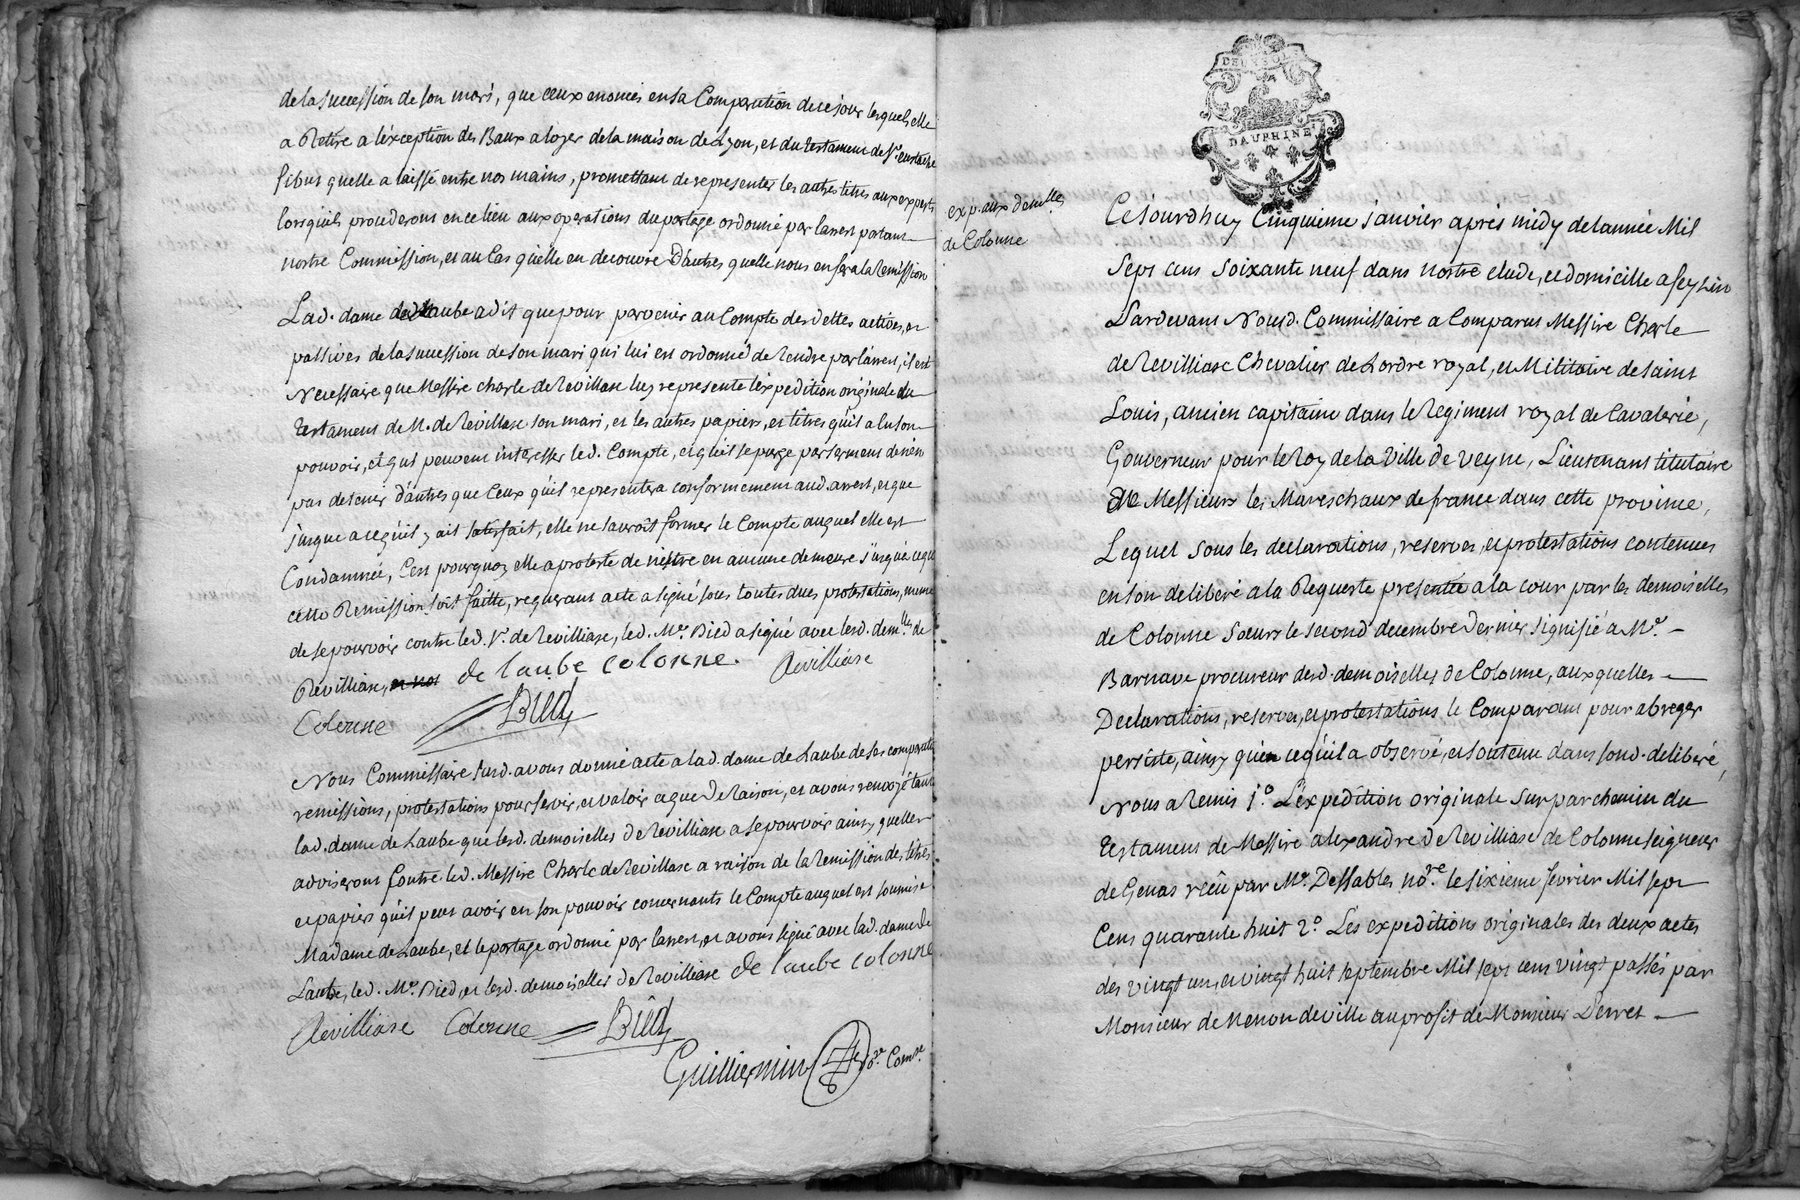 de la succession de son mari, que ceux enoncés en sa Comparution de ce jour lesquels elle
a Retiré a l'exception des Baux a loyer de la maison de Lyon, et du testament de Sr. eustache
fibus quelle a laissé entre nos mains, promettant de representer les autres titres aux experts
lorsquils procederont en ce lieu aux operations du partage ordonné par l'arrest portant
nostre Commission, et au Cas quelle en decouvre D'autres quelle nous en fera la Remission
Lad. dame de Laube a dit que pour parvenir au Compte des dettes actives, et
passives de la succession de son mari qui lui est ordonné de Rendre par l'arrest, il est
Necessaire que Messire charle de Revilliasc luy represente l'expedition originale du
testament de M. de Revilliasc son mari, et les autres papiers, et titres qu'il a en son
pouvoir, et qui peuvent interesser led. Compte, et qu'il se purge par serment de n'en
pas detenir d'autres que Ceux qu'il representera conformement aud. arrest, et que
jusque a ce qu'il y ait satisfait, elle ne sauroit former le Compte auquel elle est
Condamnée, C'est pourquoy elle a protesté de n'estre en aucune demeure jusque a ce que
cette Remission soit faitte, requerant acte a signé sous toutes dues protestations, meme
de se pourvoir contre led. Sr. de Revilliasc, led. Me. Bied a signé avec lesd. demlles de
Revilliasc, de laube colonne. Revilliasc
Colonne Bied
Nous Commissaire susd. avons donné acte a lad. dame de Laube de ses comparution
remissions, protestations pour servir, et valoir ce que de Raison, et avons renvoyé tant
lad. dame de Laube que lesd. demoiselles de Revilliasc a se pourvoir ainsy quelles
adviseront Contre led. Messire Charle de Revilliasc a raison de la Remission des titres
et papiers qu'il peut avoir en son pouvoir concernants le Compte auquel est soumise
Madame de Laube, et le partage ordonné par l'arrest, et avons signé avec lad. dame de
Laube, led. Me. Bied, et lesd. demoiselles de Revilliasc de laube colonne
Revilliasc Colonne Bied
Guilliermin No.re Com.re
DEUX SOLS
DAUPHINÉ
exp. aux demlles
de Colonne
Cejourdhuy Cinquieme janvier aprés midy de l'année Mil
Sept cens Soixante neuf dans nostre etude, et domicille a seyssin
Pardevant Nousd. Commissaire a Comparus Messire Charle
de Revilliasc Chevalier de Lordre royal, et Militaire de Saint
Louis, ancien capitaine dans le Regiment royal de Cavalerie,
Gouverneur pour le Roy de la Ville de Veyne, Lieutenant titulaire
de Messieurs les Mareschaux de france dans cette province,
Lequel sous les declarations, reserves, et protestations contenues
en son deliberé a la Requeste presentée a la cour par les demoiselles
de Colonne Sœurs le second decembre dernier signifié a Me.
Barnave procureur desd. demoiselles de Colonne, auxquelles
Declarations, reserves, et protestations le Comparant pour abreger
persiste, ainsy qu'en ce qu'il a observé, et soutenu dans son d. deliberé,
Nous a Remis 1.o L'expedition originale sur parchemin du
testament de Messire alexandre de Revilliasc de Colonne seigneur
de Genas reçu par Me. Dessables no.re le sixieme fevrier Mil sept
Cens quarante huit 2.o Les expeditions originales des deux actes
des vingt un, et vingt huit septembre Mil sept cens vingt passés par
Monsieur de Menon deville au profit de Monsieur Derret